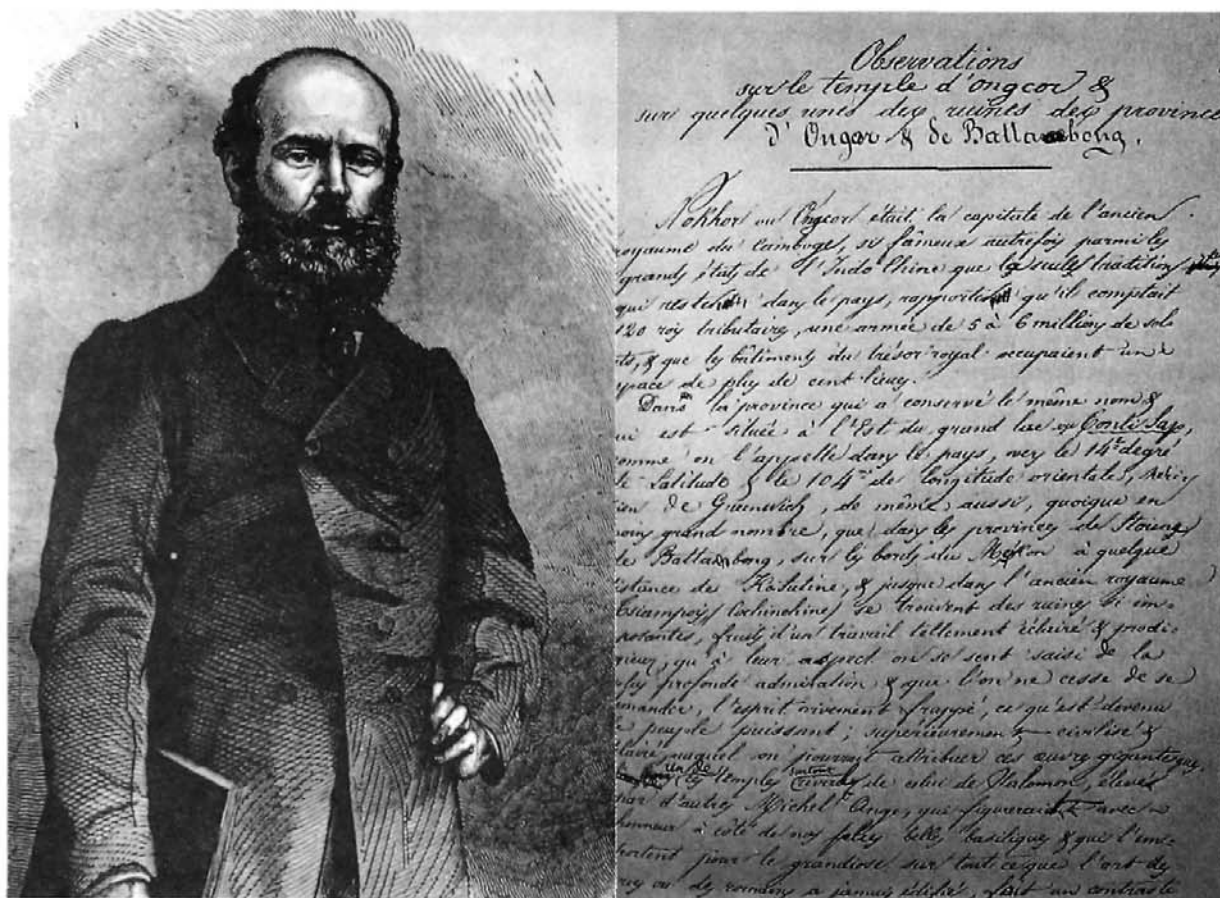 Observations
sur le temple d'ongcor &
sur quelques unes des ruines des province
d'Ongcor & de Battambong.
Nokhor ou Ongcor était la capitale de l'ancien
royaume du Camboge, si fameux autrefois parmi les
grands états de l'Indo Chine que la seule tradition
qui reste dans le pays, rapporte qu'il comptait
120 rois tributaires, une armée de 5 à 6 millions de sol
ts, & que les bâtiments du trésor royal occupaient un
space de plus de cent lieues.
Dans la province qui a conservé le même nom &
ui est située à l'Est du grand lac
omme on l'appelle dans le pays, vers le 14e degré
de latitude & le 104me de longitude orientale, Méri
ien de Greenwich, de même aussi, quoique en
moins grand nombre, que dans les provinces de
de Battambong, sur les bords du Mékon à quelque
istance de & jusque dans l'ancien royaume
Cochinchine) se trouvent des ruines si im-
posantes, fruits d'un travail tellement éclairé & prodi-
gieux, qu'à leur aspect on se sent saisi de la
plus profonde admiration & que l'on ne cesse de se
emander, l'esprit vivement frappé, ce qu'est devenu
e peuple puissant; supérieurement civilisé &
auquel on pourrait attribuer ces œuvres gigantesques.
Un de ces temples surtout de celui de Salomon, élevés
par d'autres Michel Ange, qui figureraient avec
honneur à côté de nos belles basiliques & qui l'em-
portent pour le grandiose sur tout ce que l'art des
ou des romains a jamais édifié, fait un contraste